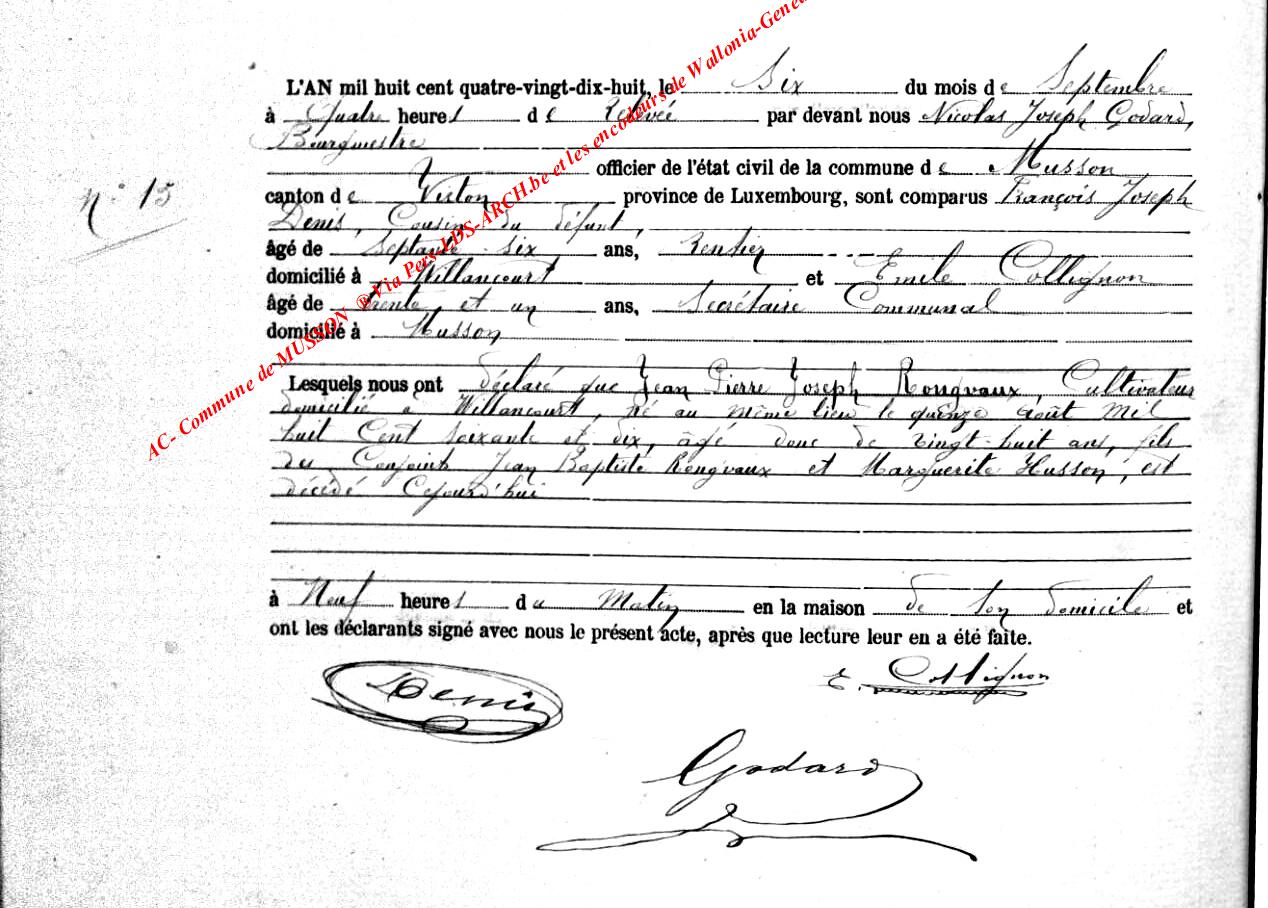 L'AN mil huit cent quatre-vingt-dix-huit, le Six du mois de Septembre
à Quatre heures de Relevée par devant nous Nicolas Joseph Godard,
Bourgmestre
officier de l'état civil de la commune de Musson
N° 15
canton de Virton province de Luxembourg, sont comparus François Joseph
Denis, Cousin du défunt,
âgé de Septante six ans, Rentier
domicilié à Willancourt et Emile Collignon
âgé de trente et un ans, Secrétaire Communal
domicilié à Musson
Lesquels nous ont déclaré que Jean Pierre Joseph Rongvaux, Cultivateur
domicilié à Willancourt, né au même lieu le quinze Août Mil
huit Cent soixante et dix, âgé donc de vingt-huit ans, fils
des Conjoints Jean Baptiste Rongvaux et Marguerite Husson, est
décédé Cejourd'hui
à Neuf heures du Matin en la maison de son domicile et
ont les déclarants signé avec nous le présent acte, après que lecture leur en a été faite.
Denis
E. Collignon
Godard
AC- Commune de MUSSON ® Via Pers-LDS-ARCH.be et les encodeurs de Wallonia-Gene